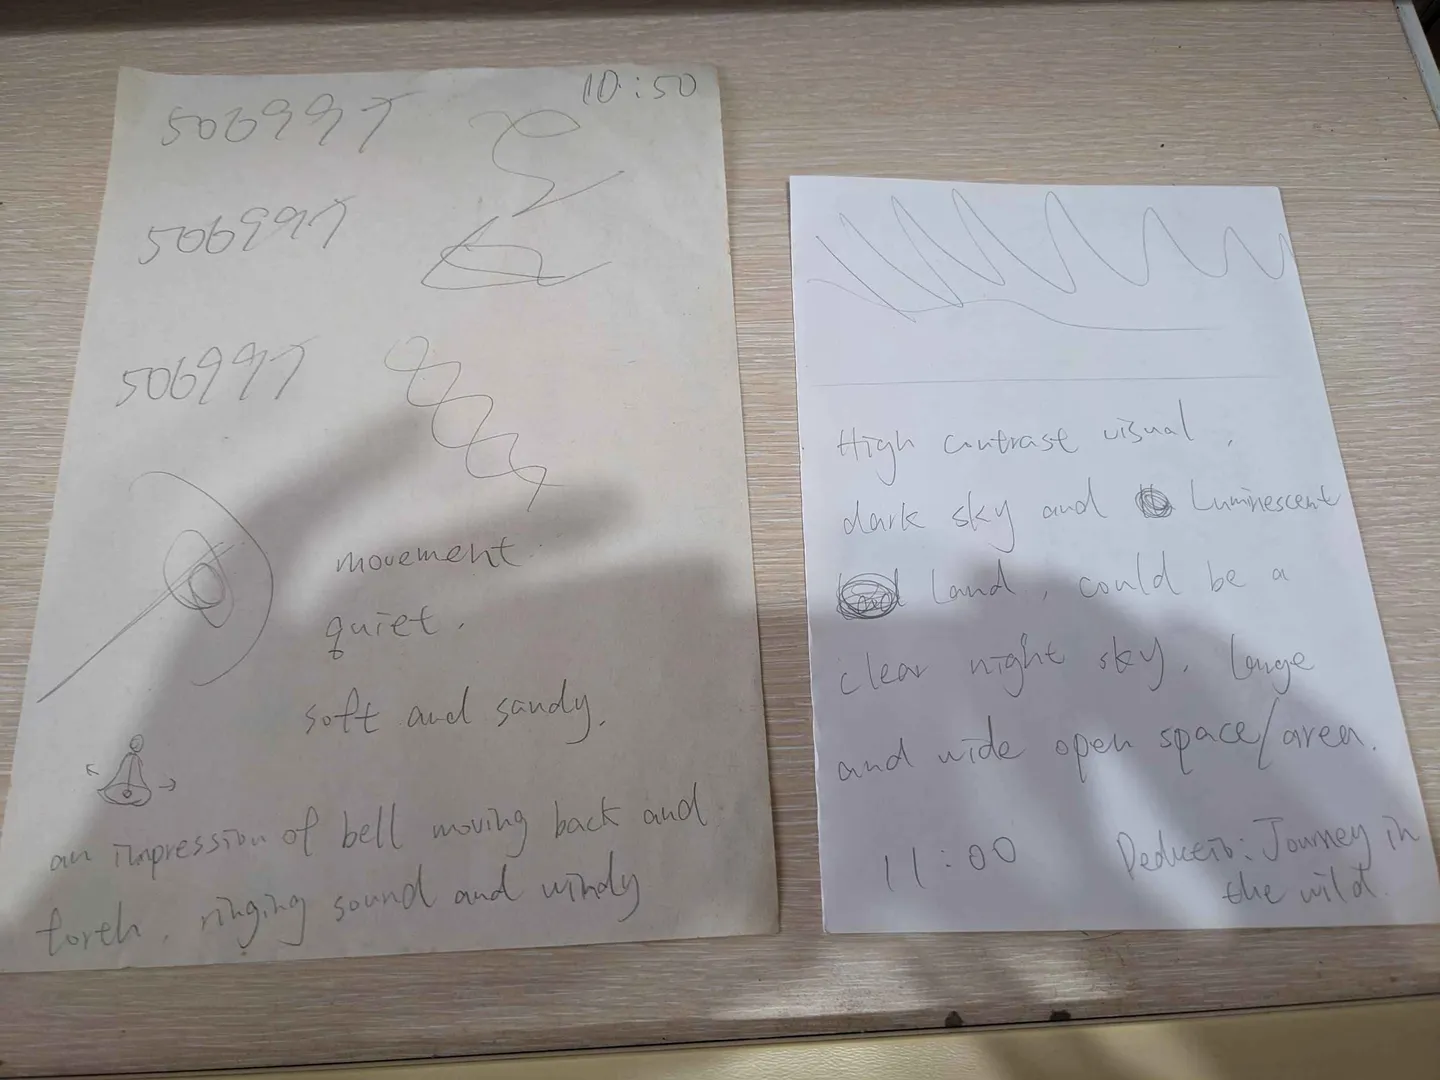 10:50
506997
506997
506997
movement
quiet.
soft and sandy.
an impression of bell moving back and
forth, ringing sound and windy
High contrast visual,
dark sky and Luminescent
Land, could be a
clear night sky. Large
and wide open space/area.
11:00
Deduction: Journey in
the wild.